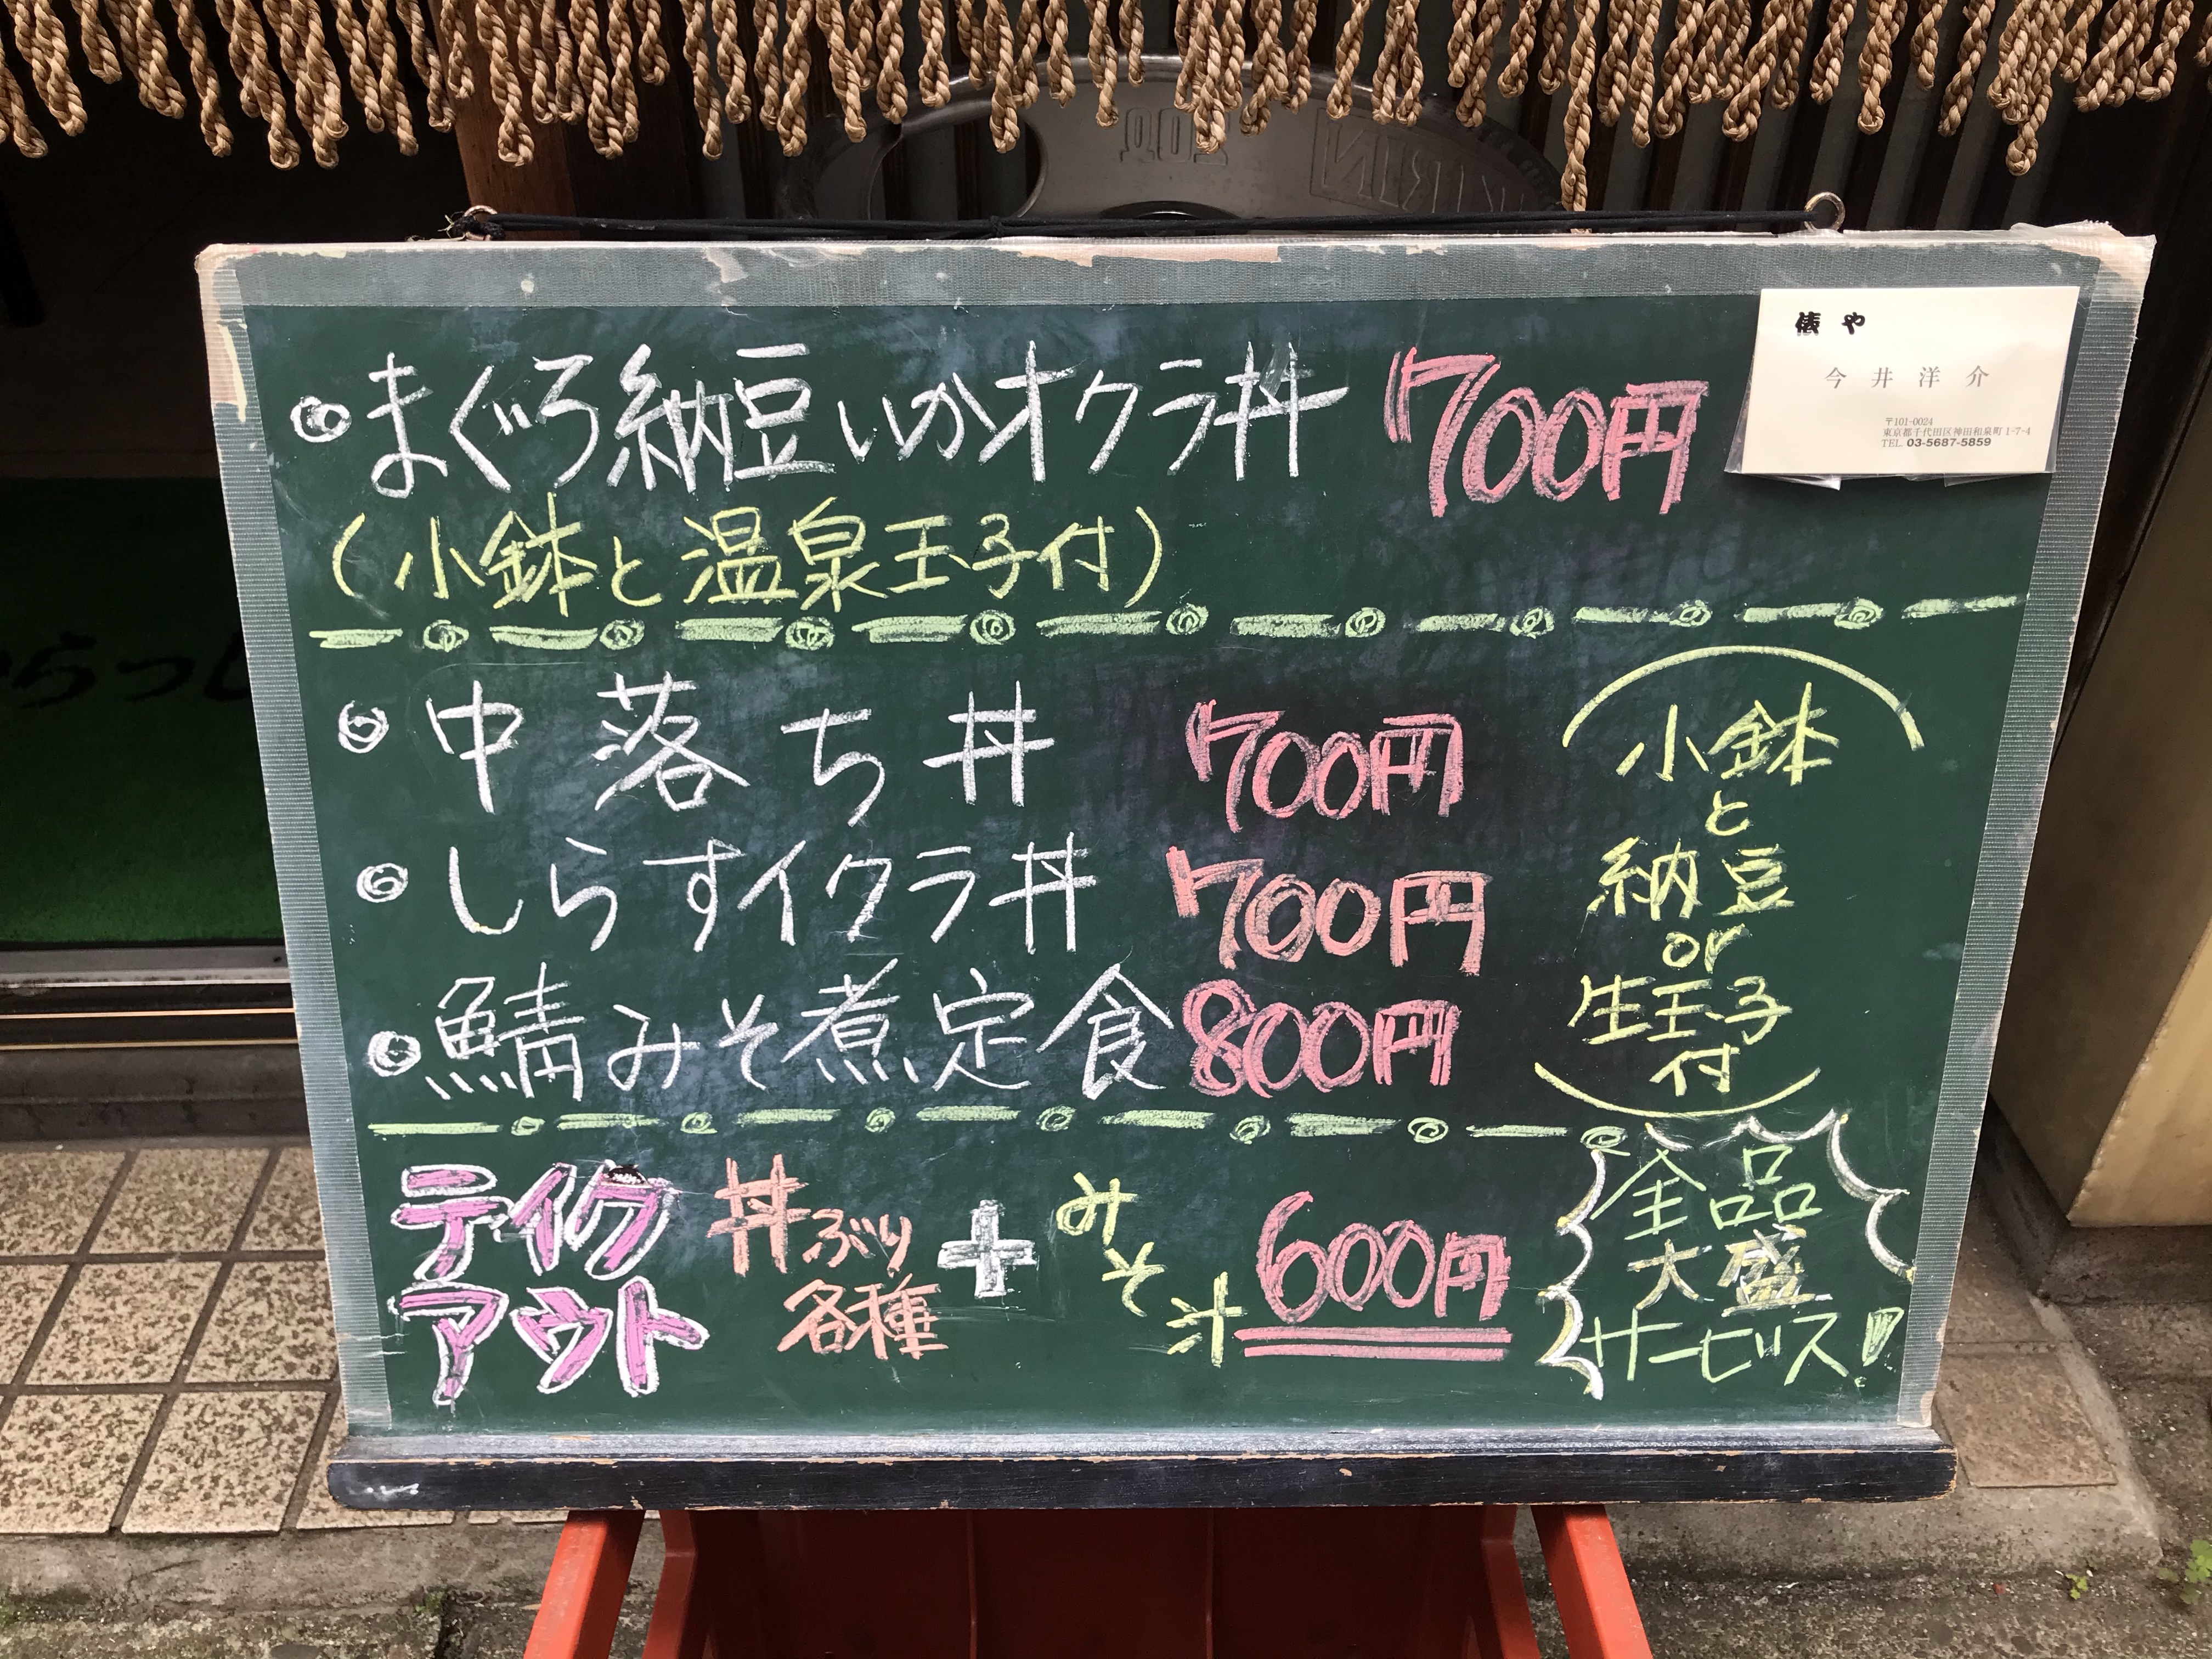 俵や
今井洋介
〒101-0024
東京都千代田区神田和泉町1-7-4
TEL 03-5687-5859
まぐろ納豆いかオクラ丼 700円
(小鉢と温泉玉子付)
中落ち丼 700円
しらすイクラ丼 700円
鯖みそ煮定食 800円
(小鉢
と
納豆
or
生玉子
付)
テイク
アウト
丼ぶり
各種
+
みそ汁
600円
全品
大盛
サービス!